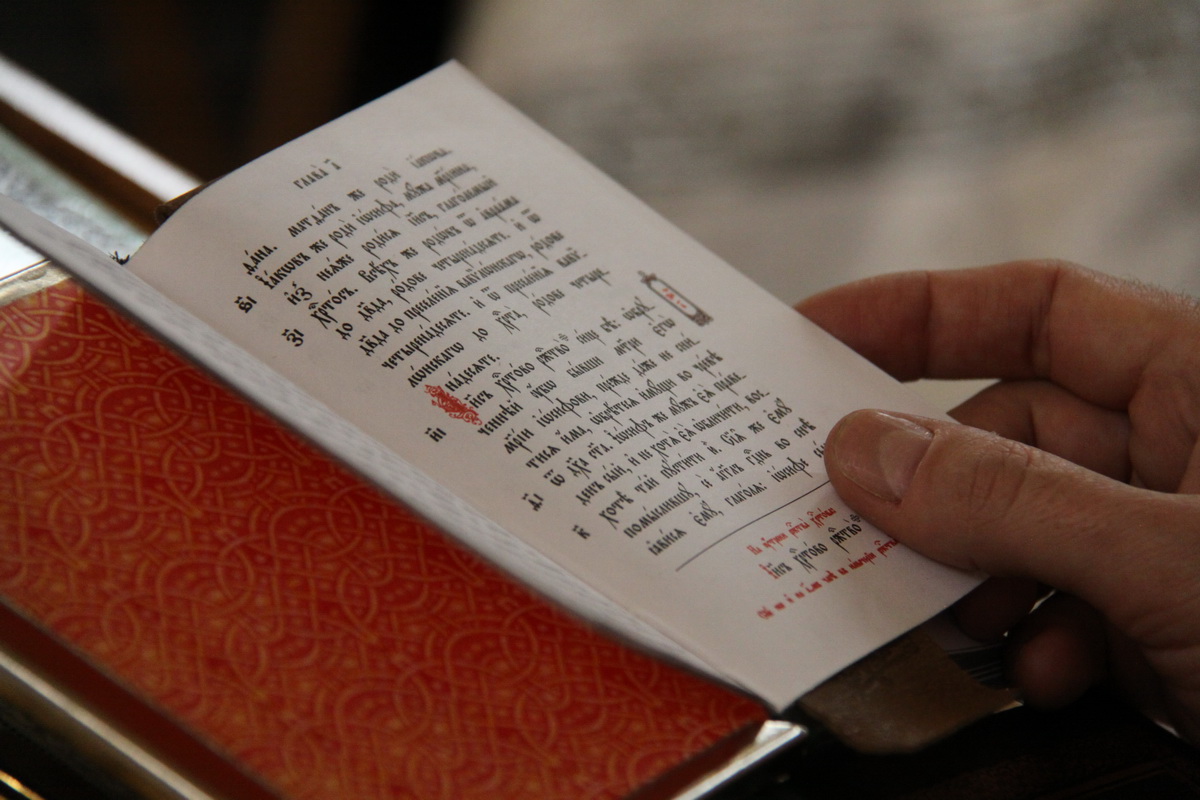 ГЛАВА̀ А҃
да́на. матѳа́нъ же родѝ і҆а́кѡва.
ѕ҃і І҆а́кѡвъ же родѝ і҆ѡ́сифа, мꙋ́жа мр҃і́ина,
и҆з̾ неѧ́же роди́сѧ і҆и҃съ, глаго́лемый
з҃і хрⷭ҇то́съ. Всѣ́хъ же родѡ́въ ѿ а҆враа́ма
до дв҃да, ро́дове четырена́десѧте: и҆ ѿ
дв҃да до преселе́нїѧ вавѷлѡ́нскагѡ, ро́дове
четырена́десѧте: и҆ ѿ преселе́нїѧ вавѷ-
лѡ́нскагѡ до хрⷭ҇та̀, ро́дове четыре-
на́десѧте.
и҃і І҆и҃съ хрⷭ҇то́во ржⷭ҇тво̀ си́це бѣ̀: ѡ҆брꙋ-
че́ннѣй бо бы́вши мт҃ри є҆гѡ̀
мр҃і́и і҆ѡ́сифови, пре́жде да́же не сни́-
тисѧ и҆́ма, ѡ҆брѣ́тесѧ и҆мꙋ́щи во чре́вѣ
ѳ҃і ѿ дх҃а ст҃а. І҆ѡ́сифъ же мꙋ́жъ є҆ѧ̀ пра́ве-
денъ сы́й, и҆ не хотѧ̀ є҆ѧ̀ ѡ҆бличи́ти, вос-
к҃ хотѣ̀ та́й пꙋсти́ти ю҆̀. Сїѧ̑ же є҆мꙋ̀
помы́слившꙋ, сѐ, а҆́гг҃лъ гдⷭ҇ень во снѣ̀
ꙗ҆ви́сѧ є҆мꙋ̀, глаго́лѧ: і҆ѡ́сифе
І҆и҃съ хрⷭ҇то́во ржⷭ҇тво̀